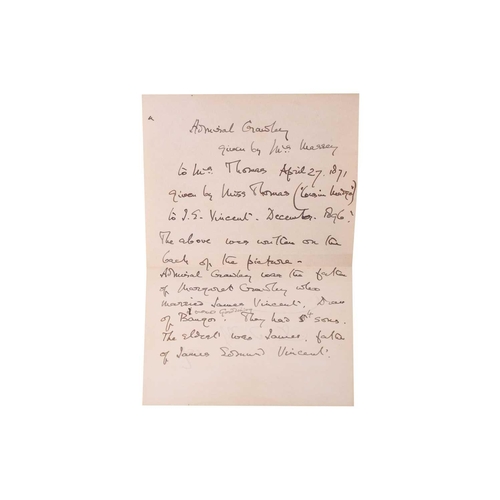 Admiral Crawley
given by Mrs Massey
to Mrs. Thomas April 27. 1871
given by Miss Thomas (Cousin
to J.E. Vincent. December 1896.
The above was written on the
back of the picture -
Admiral Crawley was the father
of Margaret Crawley who
married James Vincent. Dean
of Bangor. They had sons.
The eldest was James, father
of James Edmund Vincent.